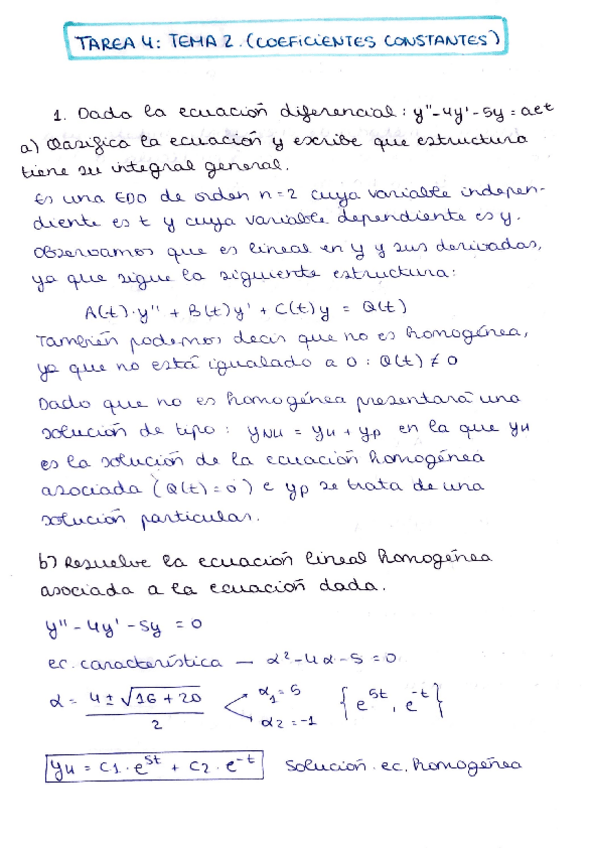 TAREA 4: TEMA 2. (COEFICIENTES CONSTANTES)
1. Dada la ecuación diferencial: y'' - 4y' - 5y = aet
a) Clasifica la ecuación y escribe que estructura
tiene su integral general.
Es una EDO de orden n=2 cuya variable indepen-
diente es t y cuya variable dependiente es y.
Observamos que es lineal en y y sus derivadas,
ya que sigue la siguiente estructura:
A(t)·y'' + B(t)y' + C(t)y = Q(t)
También podemos decir que no es homogénea,
ya que no está igualado a 0: Q(t) ≠ 0
Dado que no es homogénea presentará una
solución de tipo: yNH = yH + yp en la que yH
es la solución de la ecuación homogénea
asociada (Q(t)=0) e yp se trata de una
solución particular.
b) Resuelve la ecuación lineal homogénea
asociada a la ecuación dada.
y'' - 4y' - 5y = 0
ec. característica — α² - 4α - 5 = 0
α = 4 ± √16 + 20 / 2 α1 = 5 α2 = -1 {e^5t, e^-t}
yH = C1 · e^5t + C2 · e^-t Solución ec. homogénea